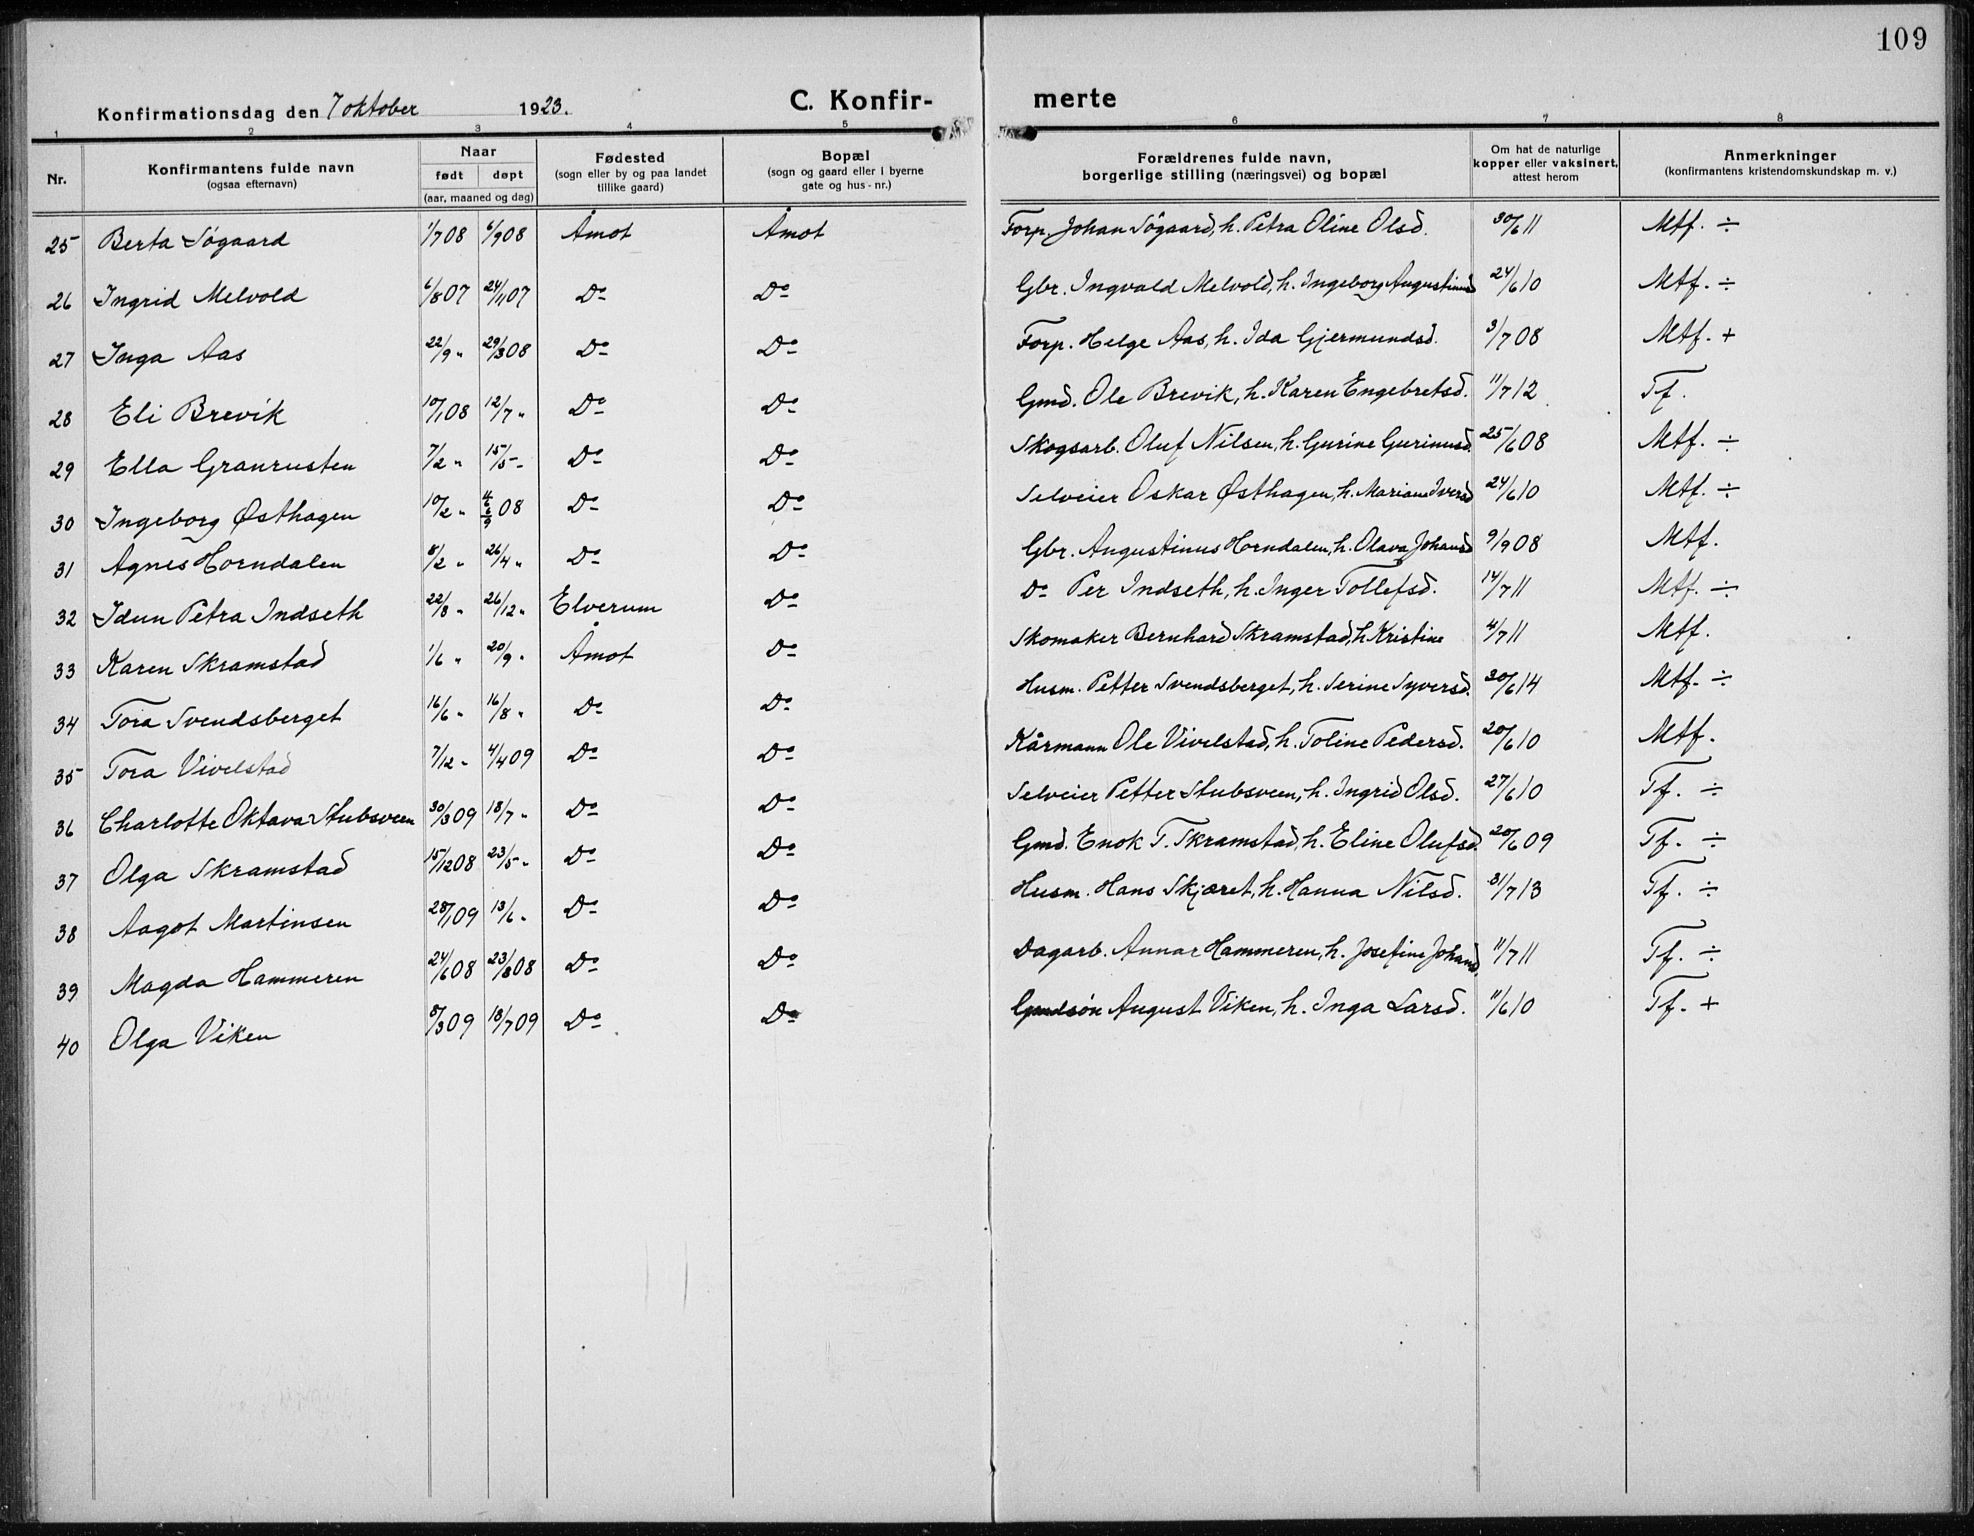 109
Konfirmationsdag den 7 oktober 1923. C. Konfir- merte
1 2 3 4 5 6 7 8
Nr. Konfirmantens fulde navn (ogsaa efternavn) Naar født døpt (aar, maaned og dag) Fødested (sogn eller by og paa landet tillike gaard) Bopæl (sogn og gaard eller i byerne gate og hus-nr.) Forældrenes fulde navn, borgerlige stilling (næringsvei) og bopæl Om hat de naturlige kopper eller vaksinert, attest herom Anmerkninger (konfirmantens kristendomskundskap m. v.)
25 Berta Søgaard 1/7 08 6/9 08 Åmot Åmot Forp. Johan Søgaard, h. Petra Oline Olsd. 30/6 11 Mtf. ÷
26 Ingrid Melvold 6/8 07 24/11 07 Do Do Gbr. Ingvald Melvold, h. Ingeborg Augustinusd 24/6 10 Mtf. ÷
27 Inga Aas 22/9 " 29/3 08 Do Do Forp. Helge Aas, h. Ida Gjermundsd. 3/7 08 Mtf. +
28 Eli Brevik 10/1 08 12/7 " Do Do Gmd. Ole Brevik, h. Karen Engebretsd. 11/7 12 Tf.
29 Ella Granrusten 7/2 " 15/5 - Do Do Skogsarb. Oluf Nilsen, h. Gurine Gurinusd. 25/6 08 Mtf. ÷
30 Ingeborg Østhagen 10/2 " 08 Do Do Selveier Oskar Østhagen, h. Mariane Iversd 24/6 10 Mtf. ÷
31 Agnes Horndalen 8/2 " 26/4 " Do Do Gbr. Augustinus Horndalen, h. Olava Johansd 9/9 08 Mtf.
32 Idun Petra Indseth 22/8 " 26/12 " Elverum Do Do Per Indseth, h. Inger Tollefsd. 14/7 11 Mtf. ÷
33 Karen Skramstad 1/6 " 20/9 " Åmot Do Skomaker Bernhard Skramstad, h Kristine 4/7 11 Mtf.
34 Tora Svendsberget 16/6 " 16/8 " Do Do Husm. Petter Svendsberget, h. Serine Syversd. 30/6 14 Mtf. ÷
35 Tora Vivelstad 7/12 " 4/4 09 Do Do Kårmann Ole Vivelstad, h. Toline Pedersd. 20/6 10 Mtf.
36 Charlotte Oktava Stubsveen 30/3 09 18/7 " Do Do Selveier Petter Stubsveen, h. Ingrid Olsd. 27/6 10 Tf. ÷
37 Olga Skramstad 15/12 08 23/5 " Do Do Gmd. Enok T. Skramstad, h. Eline Olufsd. 20/6 09 Tf. ÷
38 Aagot Martinsen 28/1 09 13/6 " Do Do Husm. Hans Skjæret, h. Hanna Nilsd. 31/7 13 Tf. ÷
39 Magda Hammeren 24/6 08 23/8 08 Do Do Dagarb. Annar Hammeren, h. Josefine Johansd, 11/7 11 Tf. ÷
40 Olga Viken 8/3 09 18/7 09 Do Do Gmdsøn August Viken, h. Inga Larsd. 11/6 10 Tf. +